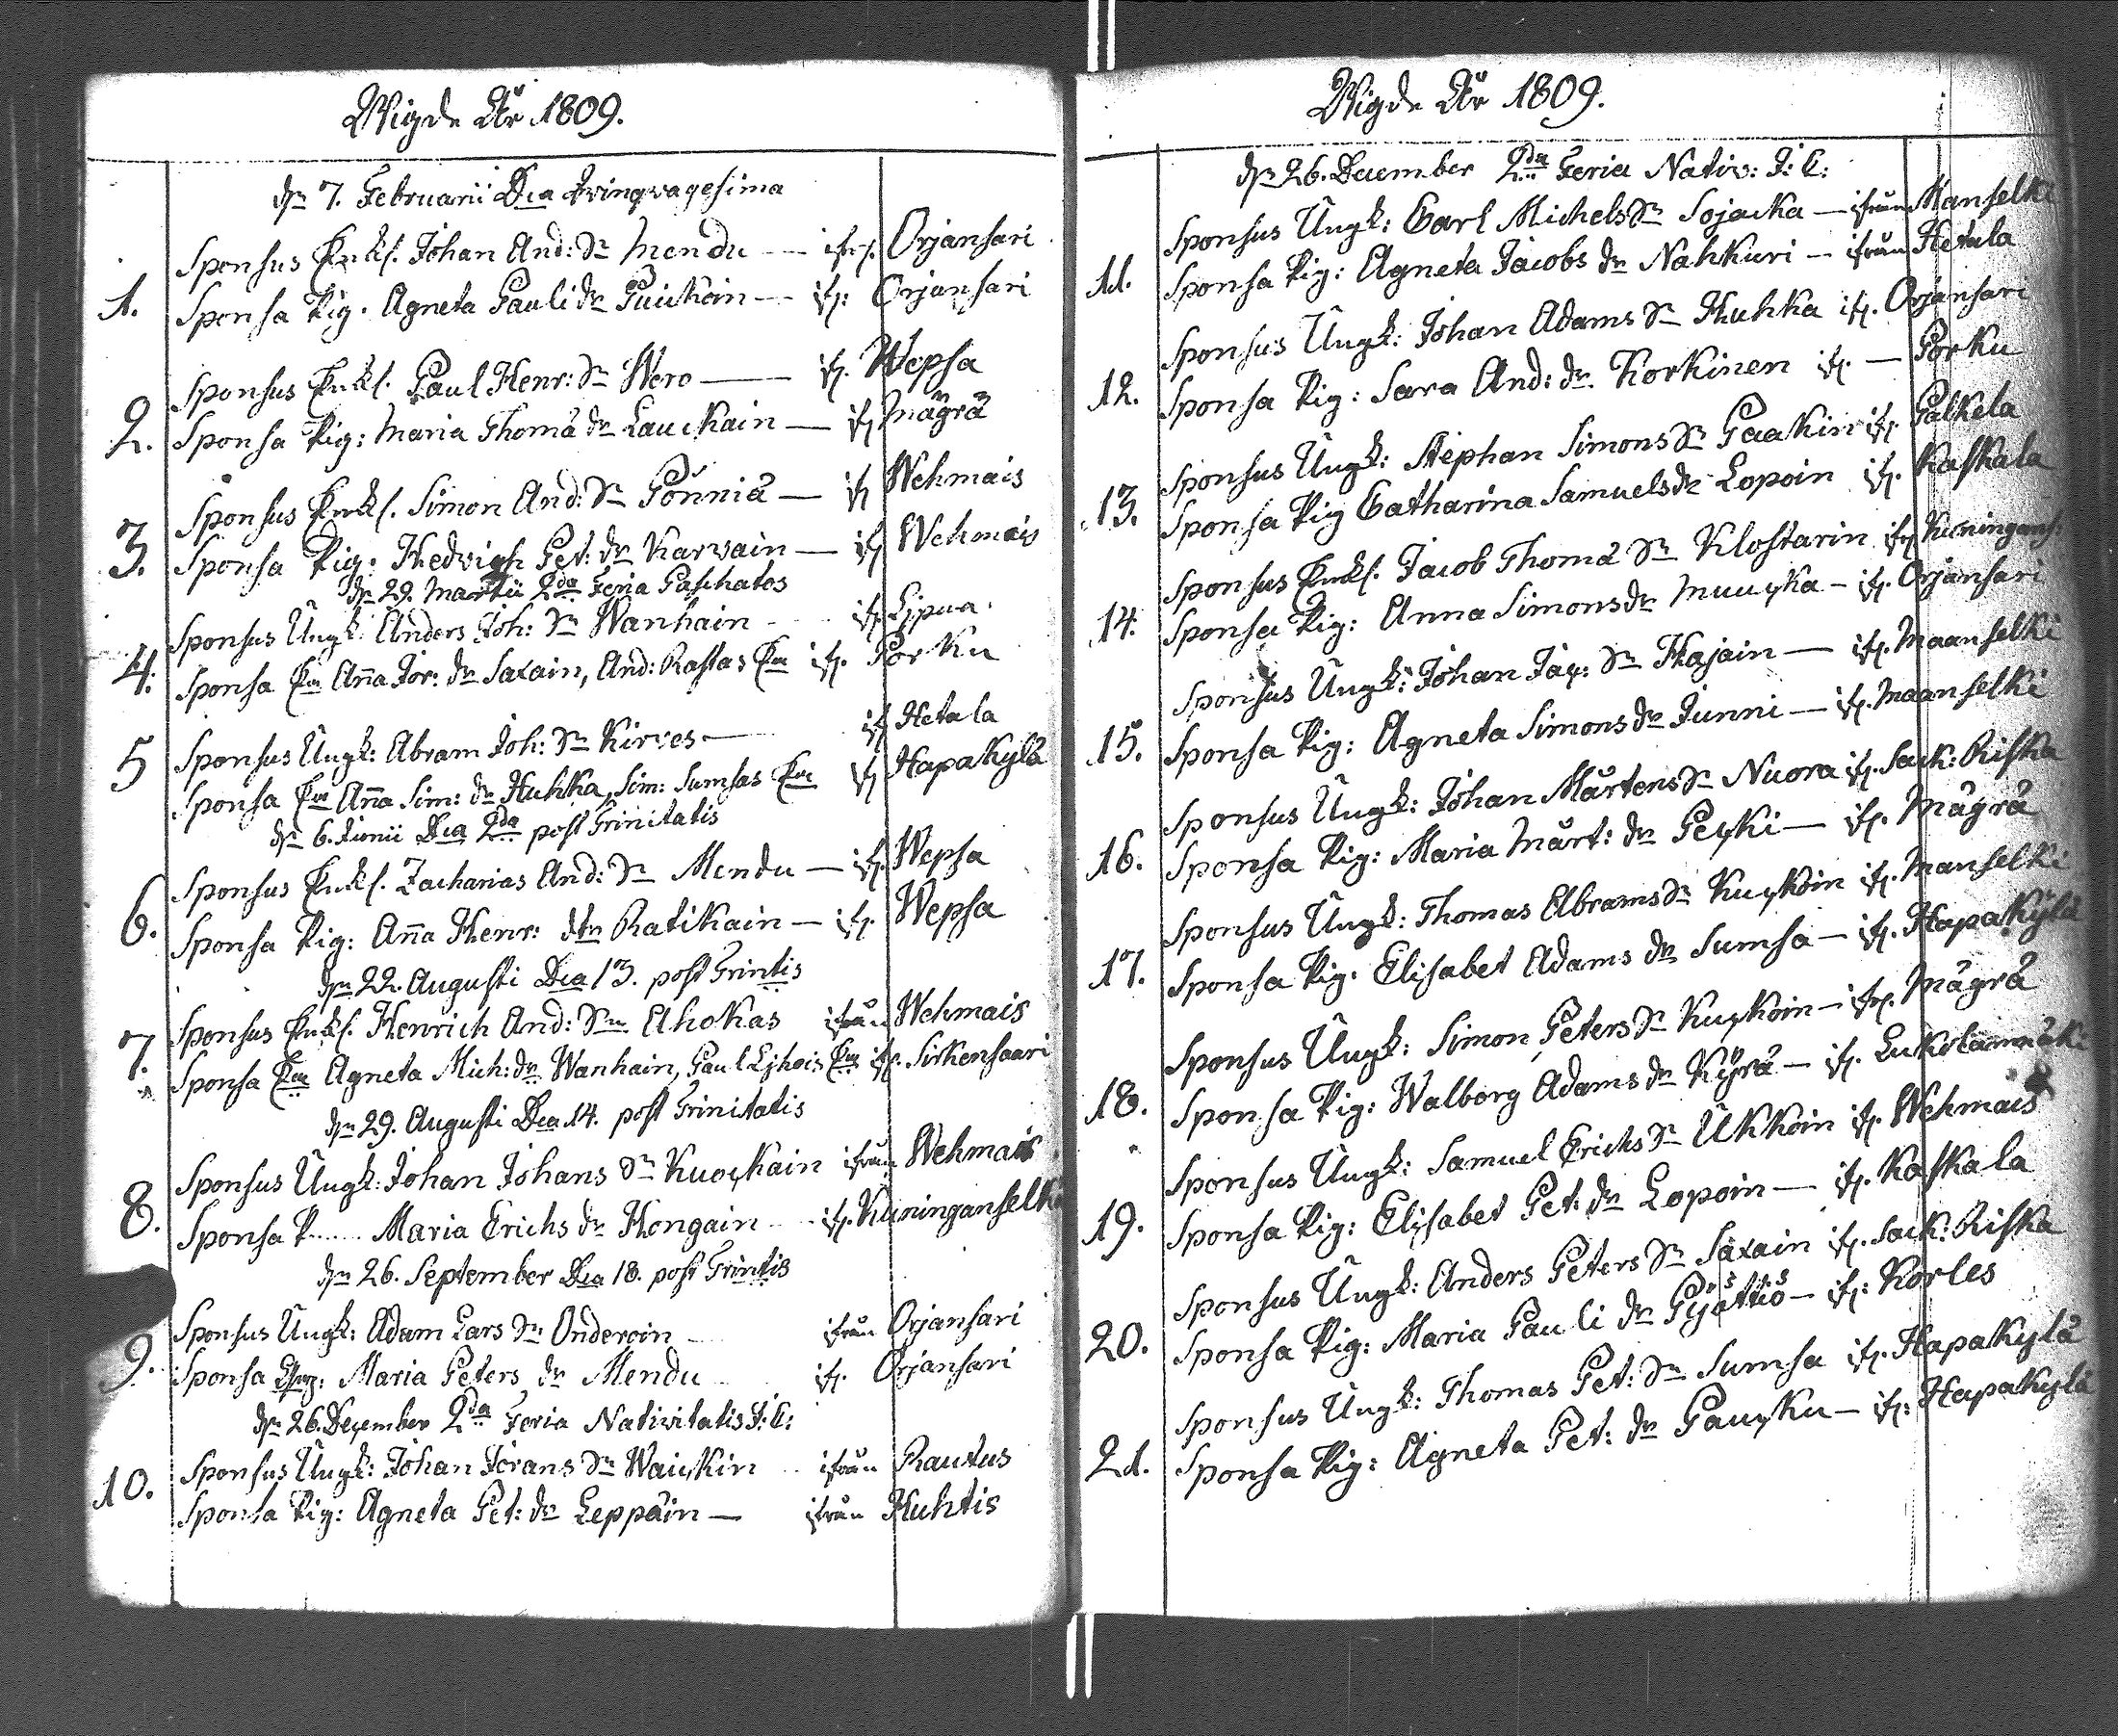 Wigde År 1809.
dn 7. Februarii Dca Qvinqvagesima
Sponsus Enkl. Johan And: Sn Mendu — ifr. Orjansari
1. Sponsa Pig. Agneta Pauli dr Puickoin — ifr: Orjansari
Sponsus Enkl. Paul Henr: Sn Wero — ifr. Wepsa
2. Sponsa Pig: Maria Thomä dr Lauckain — ifr Mägrä
Sponsus Enkl. Simon And: Sn Pönniä — ifr Wehmais
3. Sponsa Pig. Hedvigh Pet: dr Karvain — ifr Wehmais
dn 29. Martii 2da Feria Paschatos
Sponsus Ungk: Anders Joh: Sn Wanhain ifr. Lipua.
4. Sponsa Ea Aña Jör: dr Saxain, And: Rastas Ea ifr. Porku
5 Sponsus Ungk: Abram Joh: Sn Kirves — ifr Hetala
Sponsa Ea Aña Sim: dr Huhka, Sim: Sumsas Ea ifr Hapakylä
dn 6. Junii Dca 2da post Trinitatis
Sponsus Enkl. Zacharias And: Sn Mendu — ifr. Wepsa
6. Sponsa Pig: Aña Henr: dtr Ratikain — ifr. Wepsa
dn 22. Augusti Dca 13. post Trintis
Sponsus Enkl. Henrich And: Sn Ahokas ifrån Wehmais
7. Sponsa Ea Agneta Mich: dr Wanhain, Paul Ejhois Ea ifr. Sirkensaari
dn 29. Augusti Dca 14. post Trinitatis
Sponsus Ungk: Johan Johans Sn Kuockain ifrån Wehmais
8. Sponsa P...... Maria Erichs dr Hongain ifr. Kuninganselkä
dn 26. September Dca 18. post Trintis
Sponsus Ungk: Adam Lars Sn Onderoin ifrån Orjansari
9. Sponsa Maria Peters dr Mendu ifr. Orjansari
dn 26. December 2da Feria Nativitatis J: C:
Sponsus Ungk: Johan Jörans Sn Waickin ifrån Rautus
10. Sponsa Pig: Agneta Pet: dr Leppäin — ifrån Huhtis
Wigde År 1809.
dn 26. December 2da Feria Nativ: J: C:
Sponsus Ungk: Carl Michels Sn Sojacka — ifrån Manselki
11. Sponsa Pig: Agneta Jacobs dr Nahkuri — ifrån Hetala
Sponsus Ungk: Johan Adams Sn Huhka ifr. Orjansari
12. Sponsa Pig: Sara And: dr Korkinen ifr. — Porku
Sponsus Ungk: Stephan Simons Sn Paakin ifr. Palkela
13. Sponsa Pig Catharina Samuels dr Lopoin ifr. Kaskala
Sponsus Enkl. Jacob Thomä Sn Klostarin ifr Kuninganss:
14. Sponsa Pig: Anna Simons dr Muucka — ifr. Orjansari
Sponsus Ungk: Johan Jac: Sn Hajain — ifr. Maanselki
15. Sponsa Pig: Agneta Simons dr Junni — ifr. Maanselki
Sponsus Ungk: Johan Mårtens Sn Nuora ifr. Sack: Riska
16. Sponsa Pig: Maria Mårt: dr Pecki — ifr. Mägrä
Sponsus Ungk: Thomas Abrams Sn Kuckoin ifr. Manselki
17. Sponsa Pig. Elisabet Adams dr Sumsa — ifr. Hapakylä
Sponsus Ungk: Simon Peters Sn Kuckoin — ifr. Mägrä
18. Sponsa Pig: Walborg Adams dr Kyrä — ifr. Lukolanmäki
Sponsus Ungk: Samuel Erichs Sn Ukkoin ifr. Wehmais
19. Sponsa Pig: Elisabet Pet: dr Lopoin — ifr. Kaskala
Sponsus Ungk: Anders Peters Sn Saxain ifr. Sack: Riska
20. Sponsa Pig: Maria Pauli dr Pijättiö — ifr: Korles
Sponsus Ungk: Thomas Pet: Sn Sumsa ifr. Hapakylä
21. Sponsa Pig: Agneta Pet: dr Paucku — ifr: Hapakylä